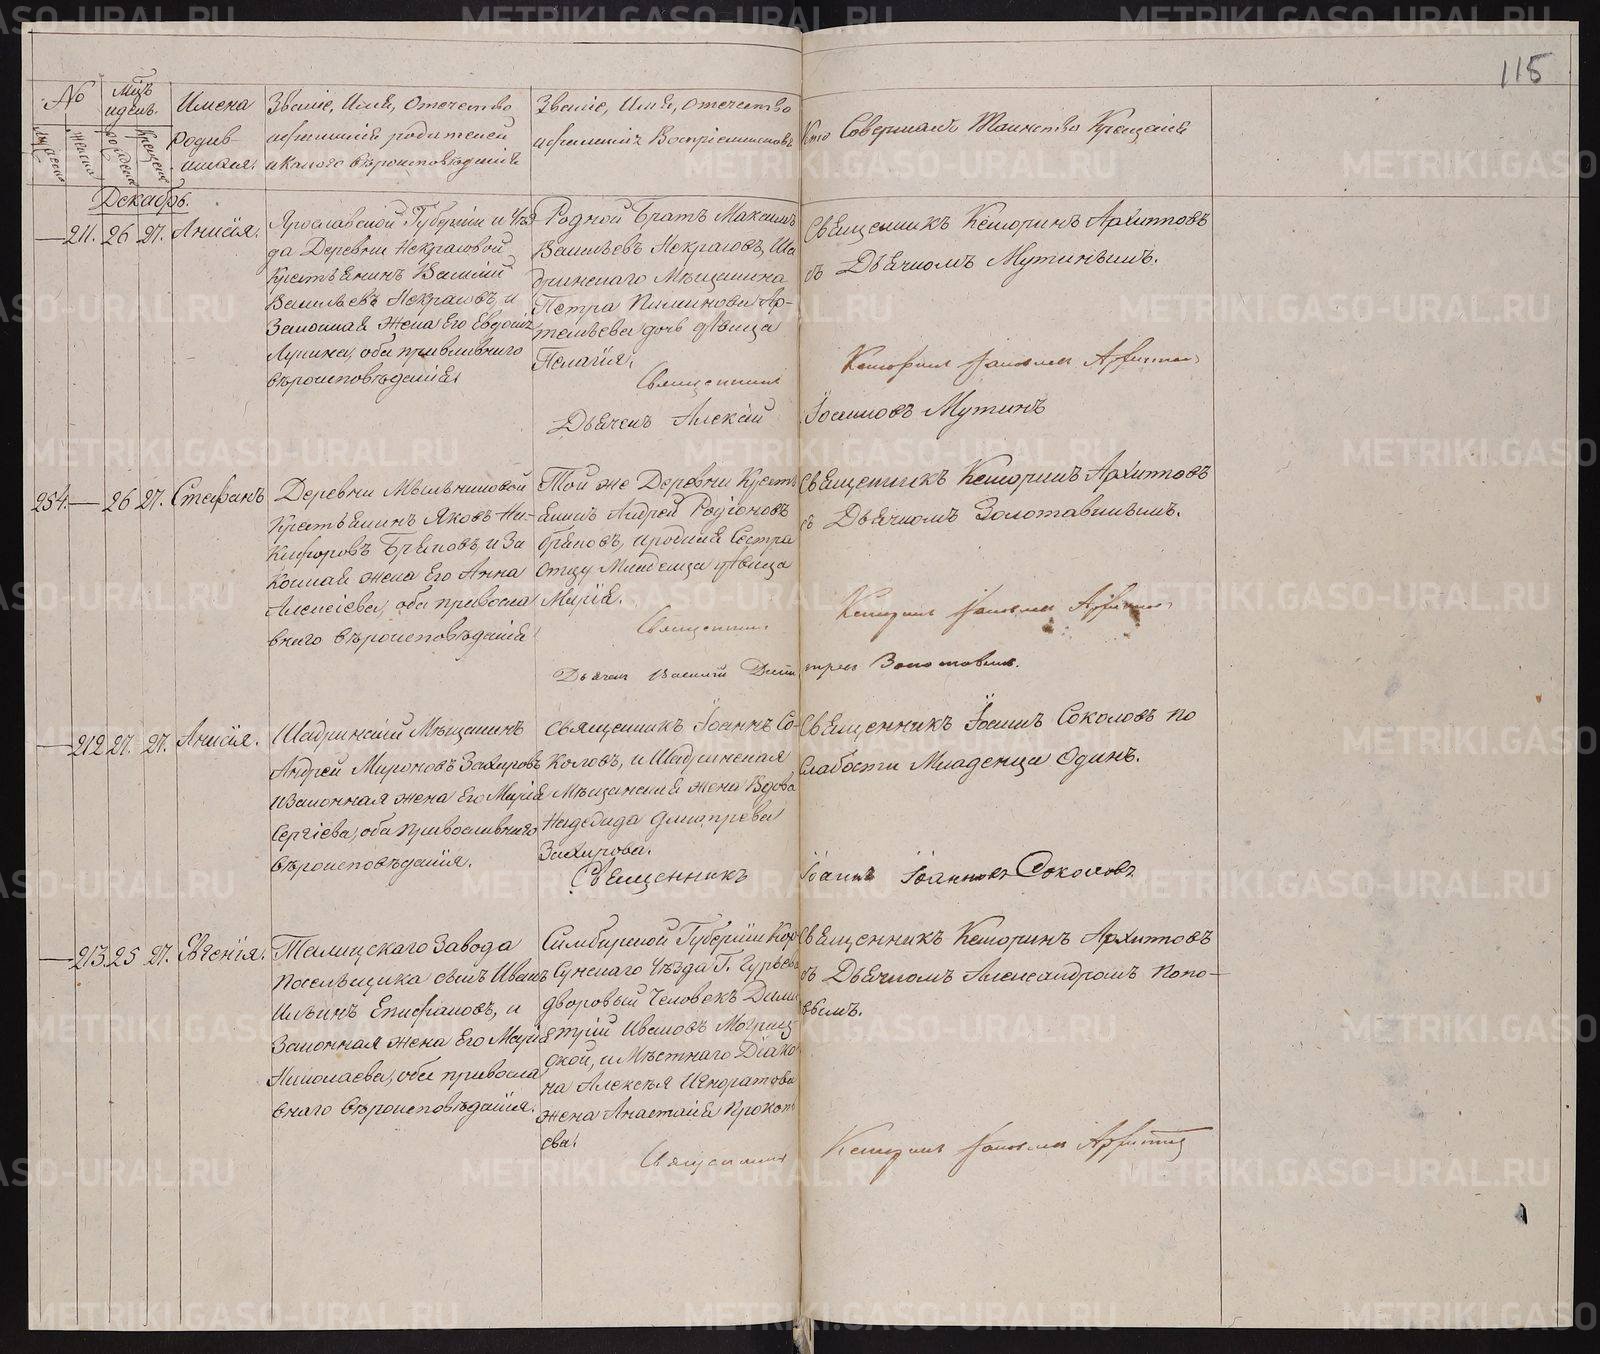 115
№
Мцъ
и день.
Имена
родив
шихся.
Званіе, Имя, Отечество
и фамилія родителей
и какого вѣроисповѣданія
Званіе, Имя, отечество
и фамилія Воспріемниковъ
Кто Совершалъ Таинство Крещенія
Декабрь.
211. 26 27. Анисія.
Ярославской Губерніи и Уѣз
да Деревни Некрасовой
Крестьянинъ Василій
Васильевъ Некрасовъ, и
Законная жена Его Евдокія
Лукина, оба православнаго
вѣроисповѣданія.
Родной Братъ Максимъ
Васильевъ Некрасовъ, Ша
дринскаго Мѣщанина
Петра Пименова Ар-
темьева дочь дѣвица
Пелагія.
Священникъ Кенсоринъ Архиповъ
съ Дьячкомъ Мутинымъ.
Священникъ
Кенсоринъ Архиповъ
Дьячекъ Алексій Іоанновъ Мутинъ
254. — 26 27. Стефанъ
Деревни Мыльниковой
Крестьянинъ Яковъ Ни-
кифоровъ и За
конная жена Его Анна
Алексіева, оба правосла
внаго вѣроисповѣданія
Той же Деревни Кресть
янинъ Андрей Родіоновъ
и родная Сестра
Отцу Младенца дѣвица
Марія.
Священникъ Кенсоринъ Архиповъ
съ Дьячкомъ Золотавинымъ.
Священникъ
Кенсоринъ Архиповъ
Дьячекъ Василій Димитріевъ Золотавинъ.
— 212 27. 27. Анисія.
Шадринскій Мѣщанинъ
Андрей Мироновъ Захаровъ
и Законная жена Его Марія
Сергіева, оба Православнаго
вѣроисповѣданія.
Священникъ Іоаннъ Со-
коловъ, и Шадринская
Мѣщанская жена Вдова
Надежда Дмитрева
Захарова.
Священникъ Іоаннъ Соколовъ по
слабости Младенца Одинъ.
Священникъ Іоаннъ Іоанновъ Соколовъ
— 213. 25 27. Евгенія.
Талицскаго Завода
Посельщика сынъ Иванъ
Ильинъ Епифановъ, и
Законная жена Его Марія
Николаева, оба правосла
внаго вѣроисповѣданія.
Симбирской Губерніи Кор
сунскаго Уѣзда Г. Гурьева
дворовый Человекъ Дими
трій Ивановъ
и Мѣстнаго Діако
на Алексѣя
жена Анастасія Прокоп
ева.
Священникъ Кенсоринъ Архиповъ
съ Дьячкомъ Александромъ Попо-
вымъ.
Священникъ
Кенсоринъ Архиповъ
METRIKI.GASO-URAL.RU